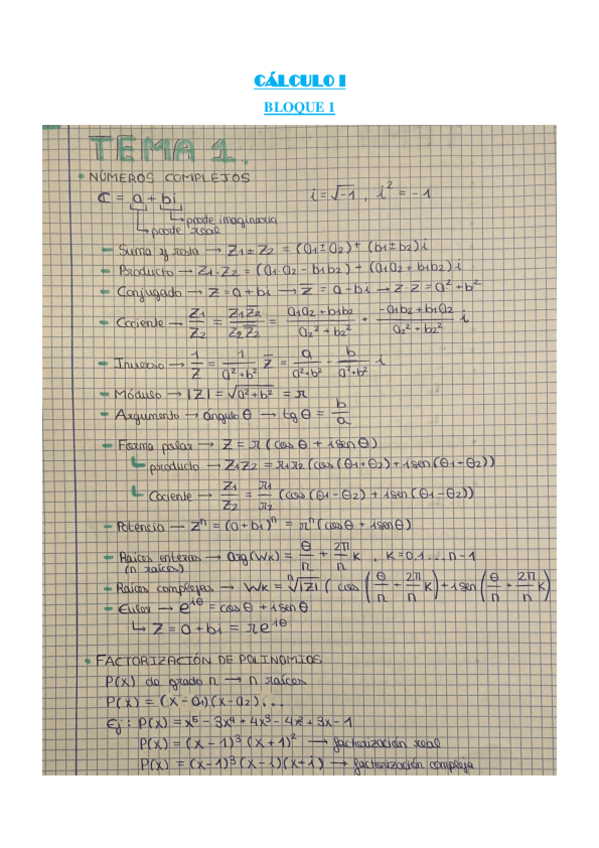 CÁLCULO I
BLOQUE 1
TEMA 1.
• NÚMEROS COMPLEJOS
C = a + bi    i = √-1 , i² = -1
parte imaginaria
parte real
– Suma y resta → Z1 ± Z2 = (a1 ± a2) + (b1 ± b2)i
– Producto → Z1 · Z2 = (a1 a2 - b1b2) + (a1a2 + b1b2) i
– Conjugado → Z = a + bi → Z̅ = a - bi → Z · Z̅ = a² + b²
– Cociente → Z1/Z2 = Z1Z̅2/Z2Z̅2 = (a1a2 + b1b2)/(a2² + b2²) + (-a1b2 + b1a2)/(a2² + b2²) i
– Inverso → 1/Z = 1/(a² + b²) Z̅ = a/(a² + b²) - b/(a² + b²) i
– Módulo → |Z| = √(a² + b²) = r
– Argumento → ángulo θ → tg θ = b/a
– Forma polar → Z = r (cos θ + i sen θ)
producto → Z1Z2 = r1r2 (cos (θ1 + θ2) + i sen (θ1 + θ2))
Cociente → Z1/Z2 = r1/r2 (cos (θ1 - θ2) + i sen (θ1 - θ2))
– Potencia → Zⁿ = (a + bi)ⁿ = rⁿ (cos θ + i sen θ)
– Raíces enteras → arg (Wk) = θ/n + 2π/n k , k = 0,1 ... n-1
(n raíces)
– Raíces complejas → Wk = ⁿ√|Z| ( cos (θ/n + 2π/n k) + i sen (θ/n + 2π/n k)
– Euler → e^iθ = cos θ + i sen θ
↳ Z = a + bi = r e^iθ
• FACTORIZACIÓN DE POLINOMIOS
P(x) de grado n → n raíces
P(x) = (x - a1)(x - a2) ...
Ej : P(x) = x⁵ - 3x⁴ + 4x³ - 4x² + 3x - 1
P(x) = (x - 1)³ (x + 1)² → factorización real
P(x) = (x - 1)³ (x - i)(x + i) → factorización compleja